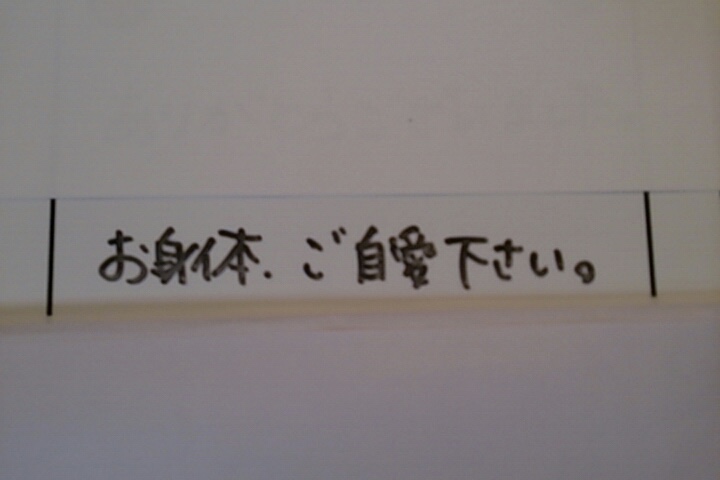 お身体、ご自愛下さい。